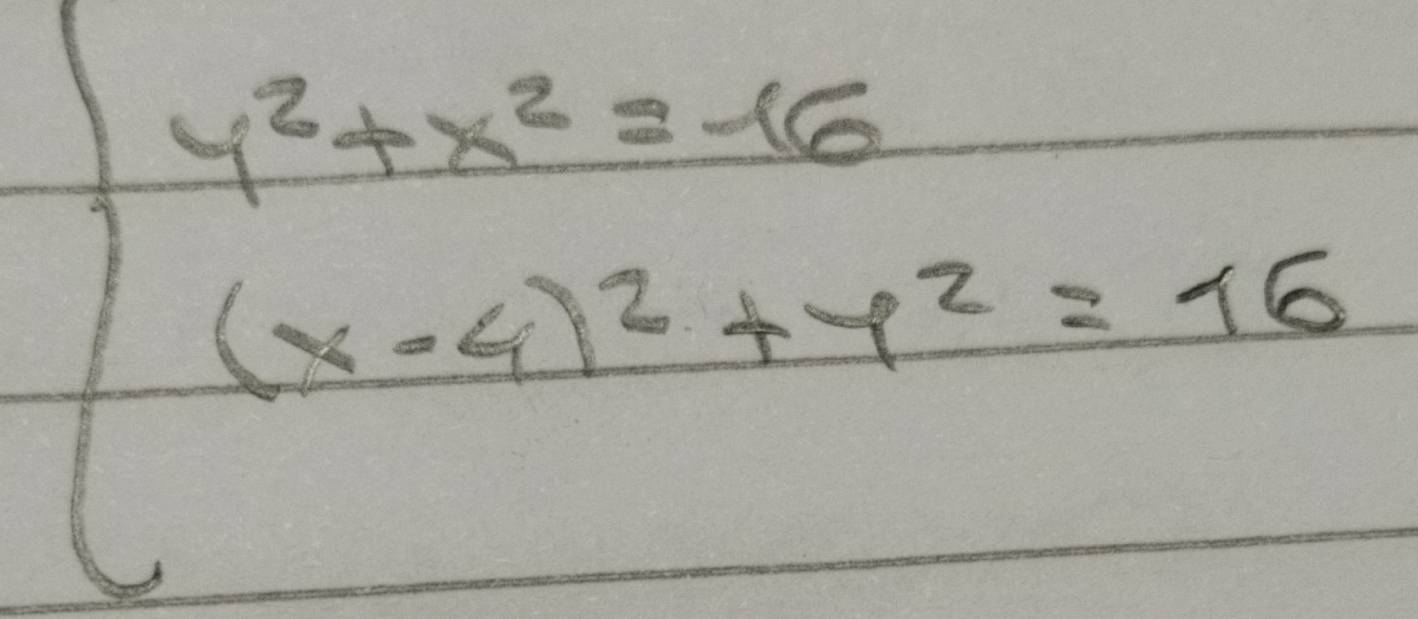 y² + x² = 16
(x - 4)² + y² = 16